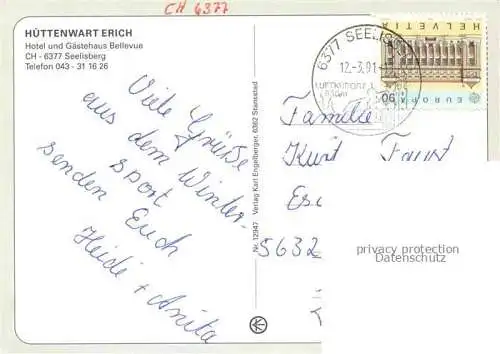 CH 6377
HÜTTENWART ERICH
Hotel und Gästehaus Bellevue
CH - 6377 Seelisberg
Telefon 043 - 31 16 26
Viele Grüße
aus dem Winter-
sport
senden Euch
Heidi + Anita
Nr. 12947 Verlag Karl Engelberger, 6362 Stansstad
6377 SEELIS
12.-3.91
HELVETIA
90
EUROPA
Familie
Kurt Faust
5632
privacy protection
Datenschutz